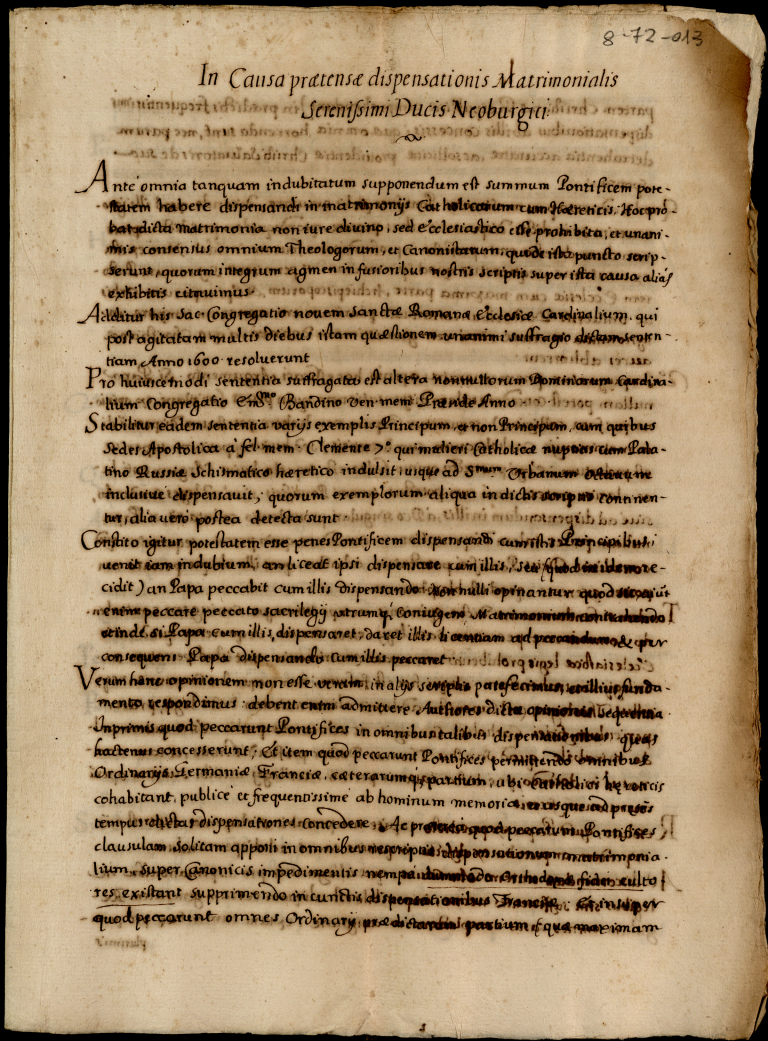 8-72-013
In Causa prætensæ dispensationis Matrimonialis
Serenissimi Ducis Neoburgici
Ante omnia tanquam indubitatum supponendum est summum Pontificem pote-
statem habere dispensandi in matrimonijs Catholicorum cum Hæreticis. Hoc pro-
bat dicta matrimonia non iure divino, sed ecclesiastico esse prohibita, et unani-
mis consensus omnium Theologorum, et Canonistarum, qui de isto puncto scrip-
serunt, quorum integrum agmen in fusioribus nostris scriptis super ista causa alias
exhibitis citavimus.
Additur his Sac. Congregatio novem Sanctæ Romanæ Ecclesiæ Cardinalium, qui
post agitatam multis diebus istam quæstionem unanimi suffragio senten-
tiam Anno 1600 resolverunt
Pro huiuscemodi sententia suffragata est altera nonnullorum Dominorum Cardina-
lium Congregatio Bandino ven. mem. Anno
Stabilitur eadem sententia varijs exemplis Principum, et non Principum, cum quibus
Sedes Apostolica à fel. mem. Clemente 7º. qui mulieri Catholicæ nuptias cum Pala-
tino Russiæ Schismatico hæretico indulsit, usque ad Urbanum
inclusive dispensavit, quorum exemplorum aliqua in dictis scriptis continen-
tur, alia vero postea detecta sunt
Constito igitur potestatem esse penes Pontificem dispensandi cum istis Principibus,
venit iam in dubium, an liceat ipsi dispensare cum illis,
cidit) an Papa peccabit cum illis dispensando. Non nulli opinantur quod sic,
enim peccare peccato sacrilegij utrumq. Coniugem Matrimonium
et inde, si Papa cum illis dispensaret, daret illis licentiam ad peccandum, & per
consequens Papa dispensando cum illis peccaret
Verum hanc opinionem non esse veram, in alijs scriptis patefecimus, et illius funda-
mento respondimus: debent enim admittere Authores dictæ opinionis sequentia.
Inprimis quod peccarunt Pontifices in omnibus talibus dispensationibus, quas
hactenus concesserunt; Et item quod peccarunt Pontifices permittendo omnibus
Ordinarijs Germaniæ, Franciæ, cæterarumq. partium, ubi Catholici hæreticis
cohabitant, publicè et frequentissimè ab hominum memoria
tempus dictas dispensationes concedere; Ac peccarunt Pontifices
clausulam solitam apponi in omnibus rescriptis dispensationum matrimonia-
lium super Canonicis impedimentis nempe
res existant supprimendo in cunctis dispensationibus Franciæ; Et insuper
quod peccarunt omnes Ordinarij prædictarum partium